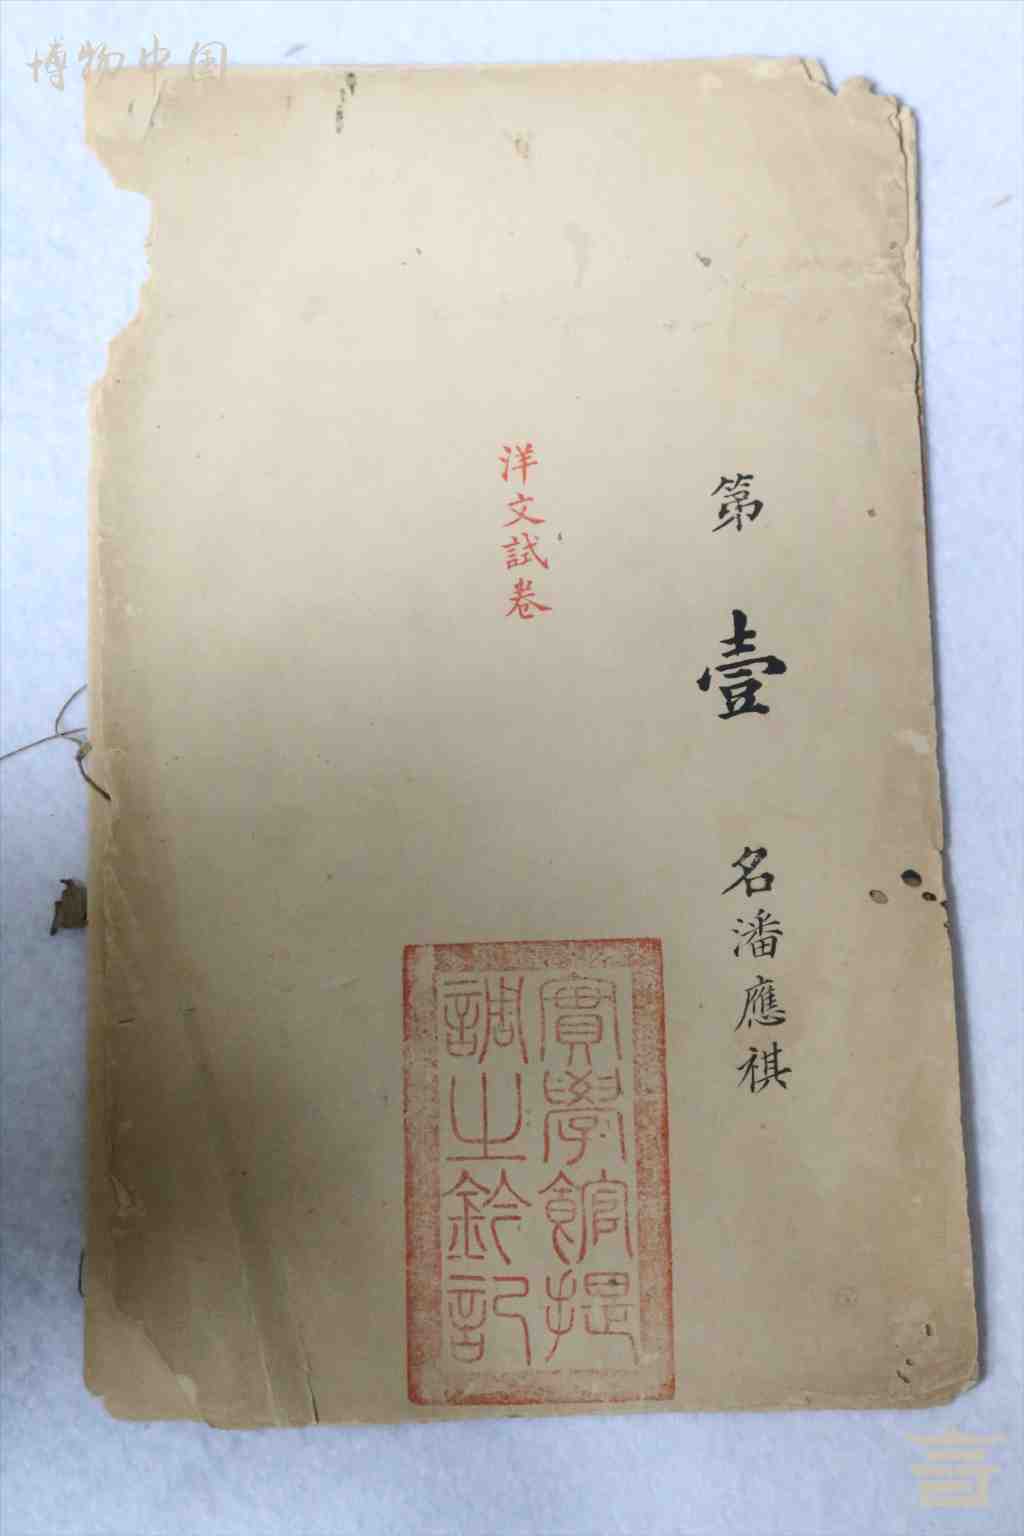 博物中国
第壹名潘應祺
洋文試卷
實學館提
調之鈐記